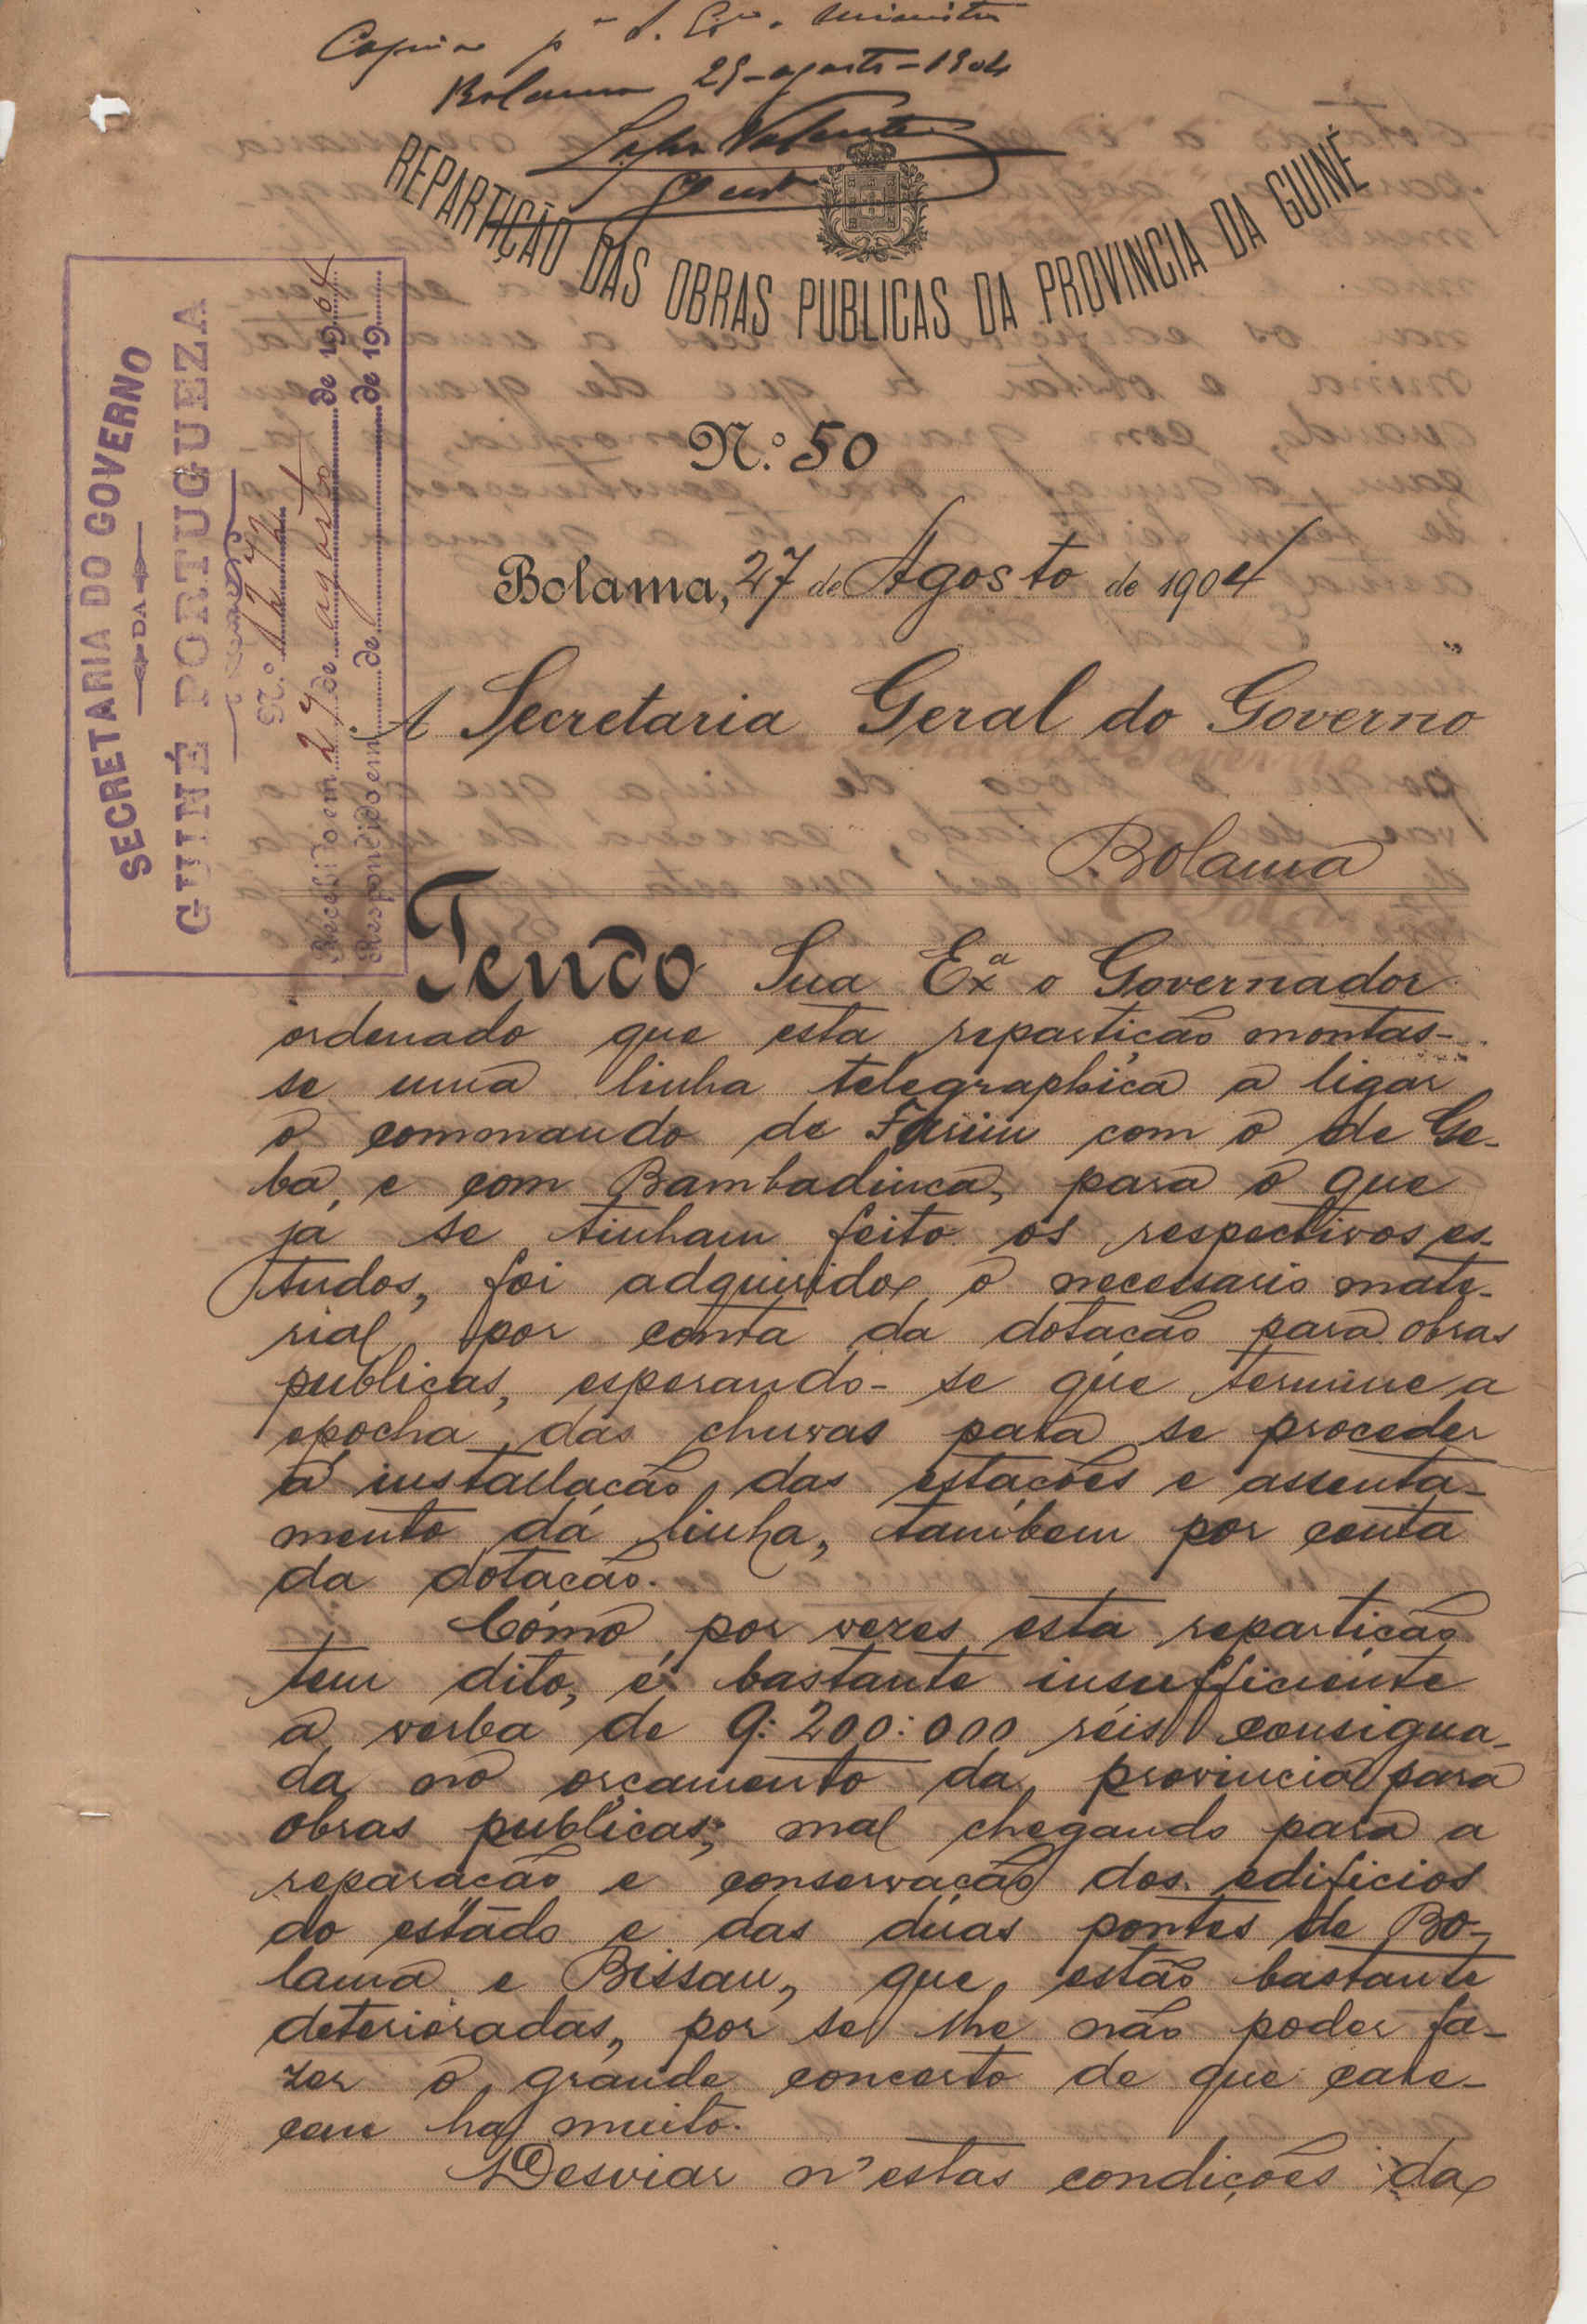 Bolama 29-agosto-1904
REPARTIÇÃO DAS OBRAS PUBLICAS DA PROVINCIA DA GUINÉ
SECRETARIA DO GOVERNO
DA
GUINÉ PORTUGUEZA
N.º
Recebido em 27 de agosto de 1904
Respondido em de de 19
N.º 50
Bolama, 27 de Agosto de 1904
A Secretaria Geral do Governo
Bolama
Tendo Sua Exª o Governador
ordenado que esta repartição montas-
se uma linha telegraphica a ligar
o commando de Farim com o de Ge-
ba, e com Bambadinca, para o que
já se tinham feito os respectivos es-
tudos, foi adquirido o necessario mate-
rial, por conta da dotação para obras
publicas, esperando-se que termine a
epocha das chuvas para se proceder
á installação das estações e assenta-
mento da linha, tambem por conta
da dotação.
Cómo por vezes esta repartição
tem dito, é bastante insufficiente
a verba de 9:200:000 réis consigna-
da no orçamento da provincia para
obras publicas; mal chegando para a
reparação e conservação dos edificios
do estado e das duas pontes de Bo-
lama e Bissau, que estão bastante
deterioradas, por se lhe não poder fa-
zer o grande concerto de que care-
cem ha muito.
Desviar n'estas condições da